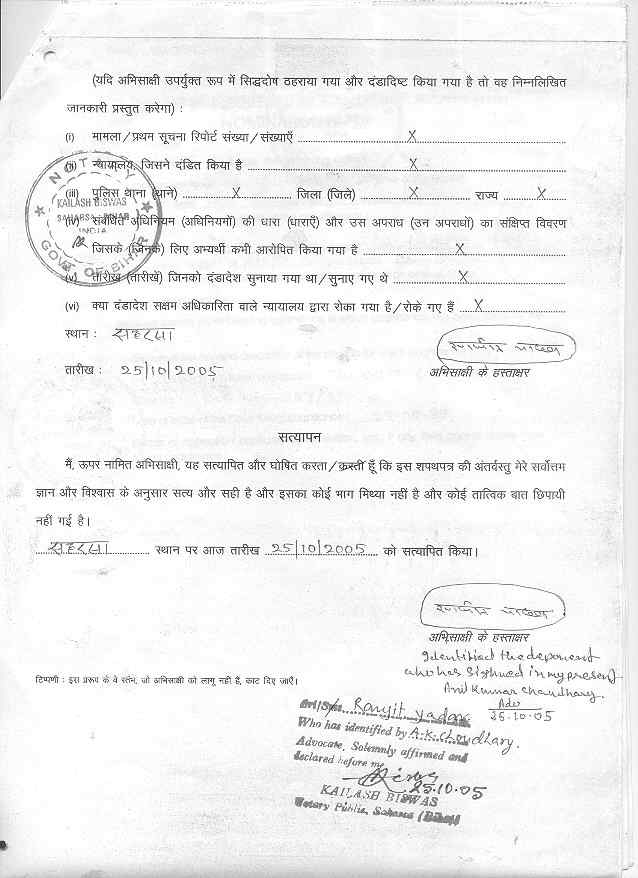 (यदि अभिसाक्षी उपर्युक्त रूप में सिद्धदोष ठहराया गया और दंडादिष्ट किया गया है तो वह निम्नलिखित
जानकारी प्रस्तुत करेगा) :
(i) मामला/प्रथम सूचना रिपोर्ट संख्या/संख्याएँ X
(ii) न्यायालय, जिसने दंडित किया है X
(iii) पुलिस थाना (थाने) X जिला (जिले) X राज्य X
(iv) संबंधित अधिनियम (अधिनियमों) की धारा (धाराएँ) और उस अपराध (उन अपराधों) का संक्षिप्त विवरण
जिसके (जिनके) लिए अभ्यर्थी कभी आरोपित किया गया है X
(v) तारीख (तारीखें) जिनको दंडादेश सुनाया गया था/सुनाए गए थे X
(vi) क्या दंडादेश सक्षम अधिकारिता वाले न्यायालय द्वारा रोका गया है/रोके गए हैं X
NOTARY
KAILASH BISWAS
SAHARSA BIHAR
INDIA
GOVT OF BIHAR
स्थान : सहरसा
तारीख : 25/10/2005
अभिसाक्षी के हस्ताक्षर
सत्यापन
मैं, ऊपर नामित अभिसाक्षी, यह सत्यापित और घोषित करता/करती हूँ कि इस शपथपत्र की अंतर्वस्तु मेरे सर्वोत्तम
ज्ञान और विश्वास के अनुसार सत्य और सही है और इसका कोई भाग मिथ्या नहीं है और कोई तात्विक बात छिपायी
नहीं गई है।
सहरसा स्थान पर आज तारीख 25/10/2005 को सत्यापित किया।
अभिसाक्षी के हस्ताक्षर
Identified the deponent
who has sighned in my present
Anil Kumar Chaudhary
Adv
25.10.05
टिप्पणी : इस प्ररूप के वे स्तंभ, जो अभिसाक्षी को लागू नहीं है, काट दिए जाएँ।
Ranjit yadav
Who has identified by A.K. Choudhary.
Advocate, Solemnly affirmed and
declared before me
25.10.05
KAILASH BISWAS
Notary Public, Saharsa (Bihar)